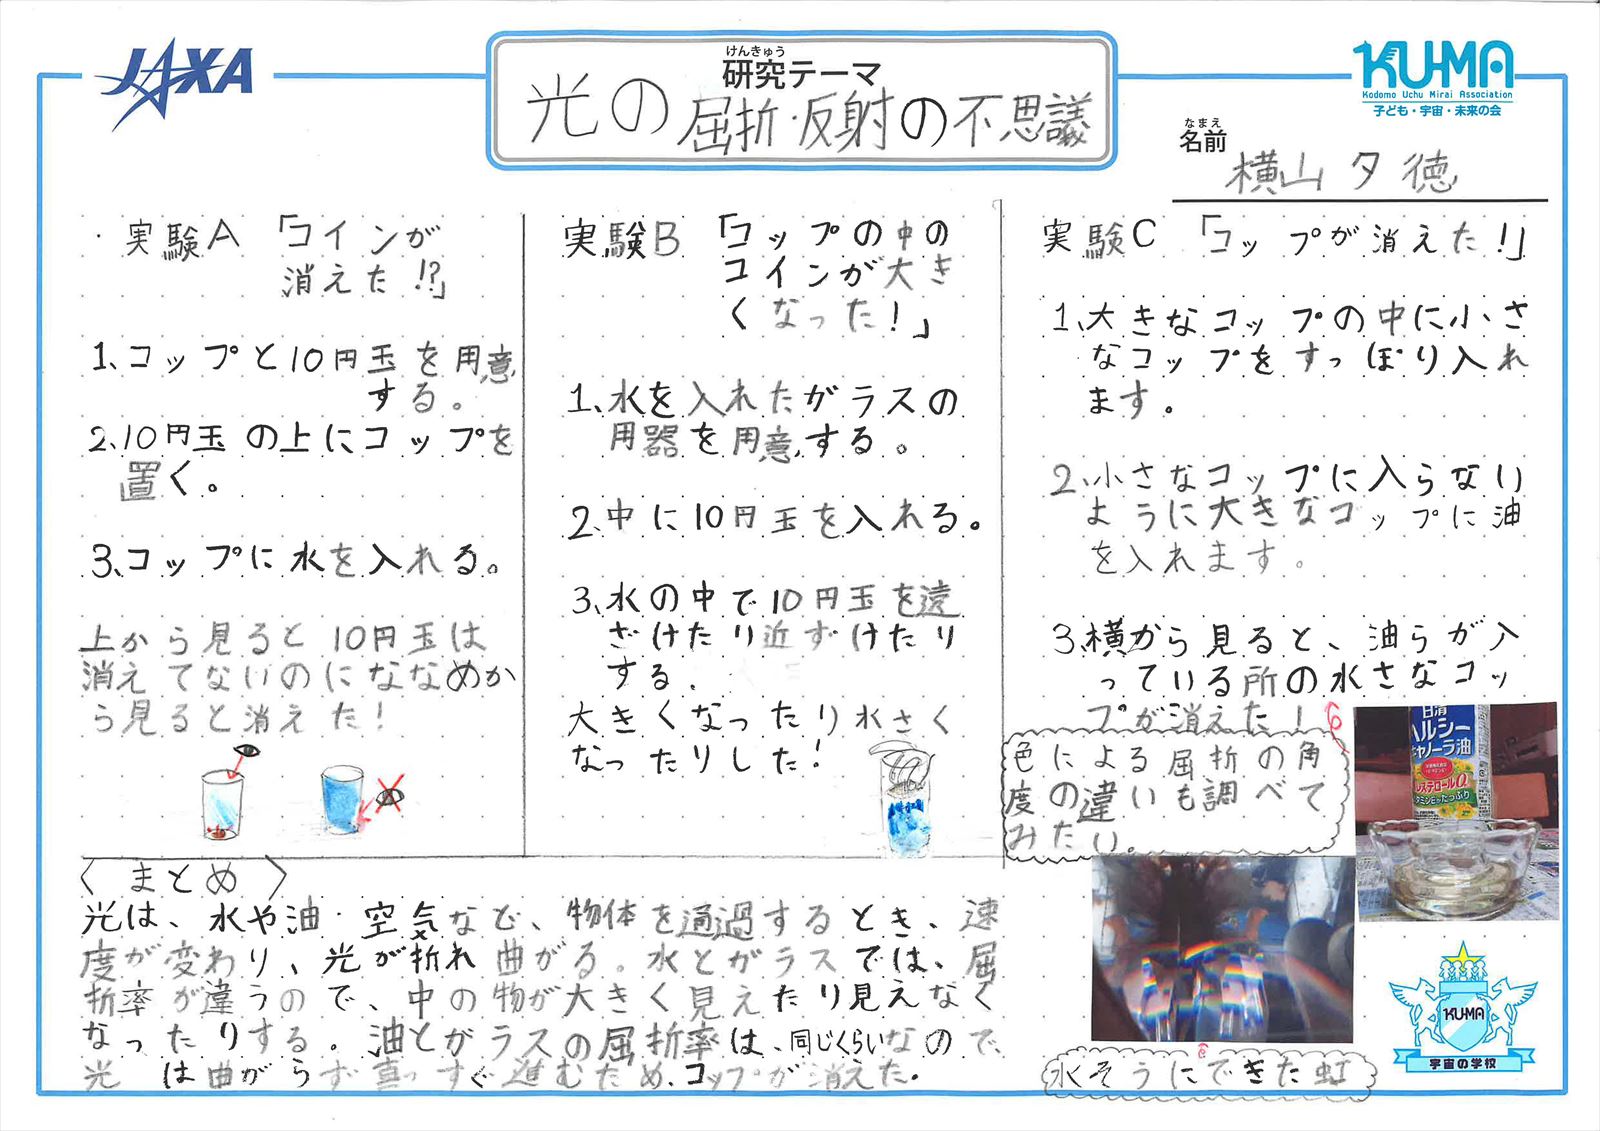 JAXA
けんきゅう
研究テーマ
光の屈折・反射の不思議
KU-MA
Kodomo Uchu Mirai Association
子ども・宇宙・未来の会
なまえ
名前
横山夕徳
・実験A 「コインが
消えた!?」
1、コップと10円玉を用意
する。
2、10円玉の上にコップを
置く。
3、コップに水を入れる。
上から見ると10円玉は
消えてないのにななめか
ら見ると消えた!
実験B 「コップの中の
コインが大き
くなった!」
1、水を入れたガラスの
用器を用意する。
2、中に10円玉を入れる。
3、水の中で10円玉を遠
ざけたり近ずけたり
する.
大きくなったり水さく
なったりした!
実験C 「コップが消えた!」
1、大きなコップの中に小さ
なコップをすっぽり入れ
ます。
2、小さなコップに入らない
ように大きなコップに油
を入れます。
3、横から見ると、油らが入
っている所の水さなコッ
プが消えた!
色による屈折の角
度の違いも調べて
みたい。
日清
ヘルシー
キャノーラ油
コレステロール0
ビタミンEたっぷり
〈まとめ〉
光は、水や油・空気など、物体を通過するとき、速
度が変わり、光が折れ曲がる。水とガラスでは、屈
折率が違うので、中の物が大きく見えたり見えなく
なったりする。油とガラスの屈折率は、同じくらいなので、
光は曲がらず真っすぐ進むため、コップが消えた.
水そうにできた虹
KU-MA
宇宙の学校